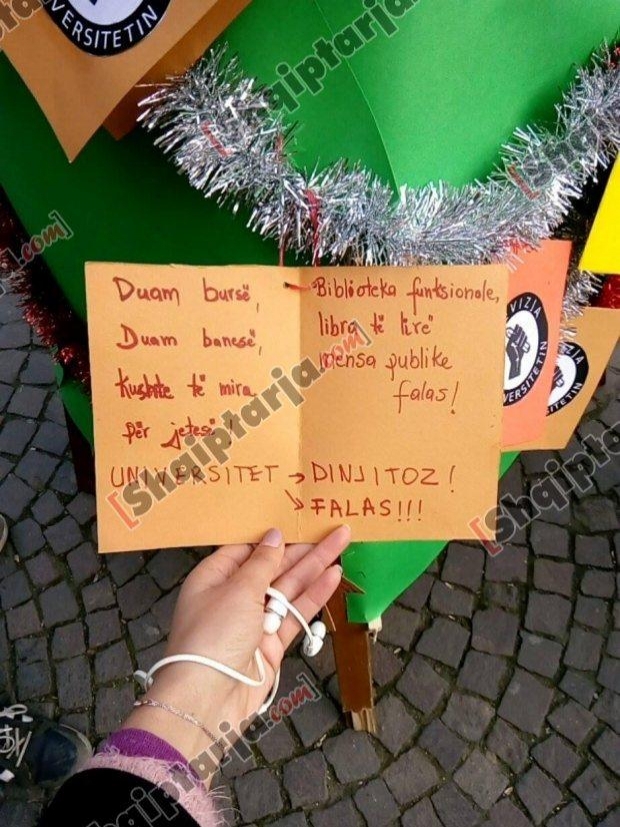 UNIVERSITETIN
Duam bursë,
Duam banesë,
Kushte të mira
për jetesë!
Biblioteka funksionale,
libra të lirë
mensa publike
falas!
UNIVERSITET → DINJITOZ!
↘ FALAS!!!
VIZIA
VERSITETIN
VIZIA
ERSITETIN
[Shqiptarja.com]
[Shqiptarja
[Shqiptarja
.com]
[Shqiptarja.com]
[Shqiptarja
Shqiptarja.com]